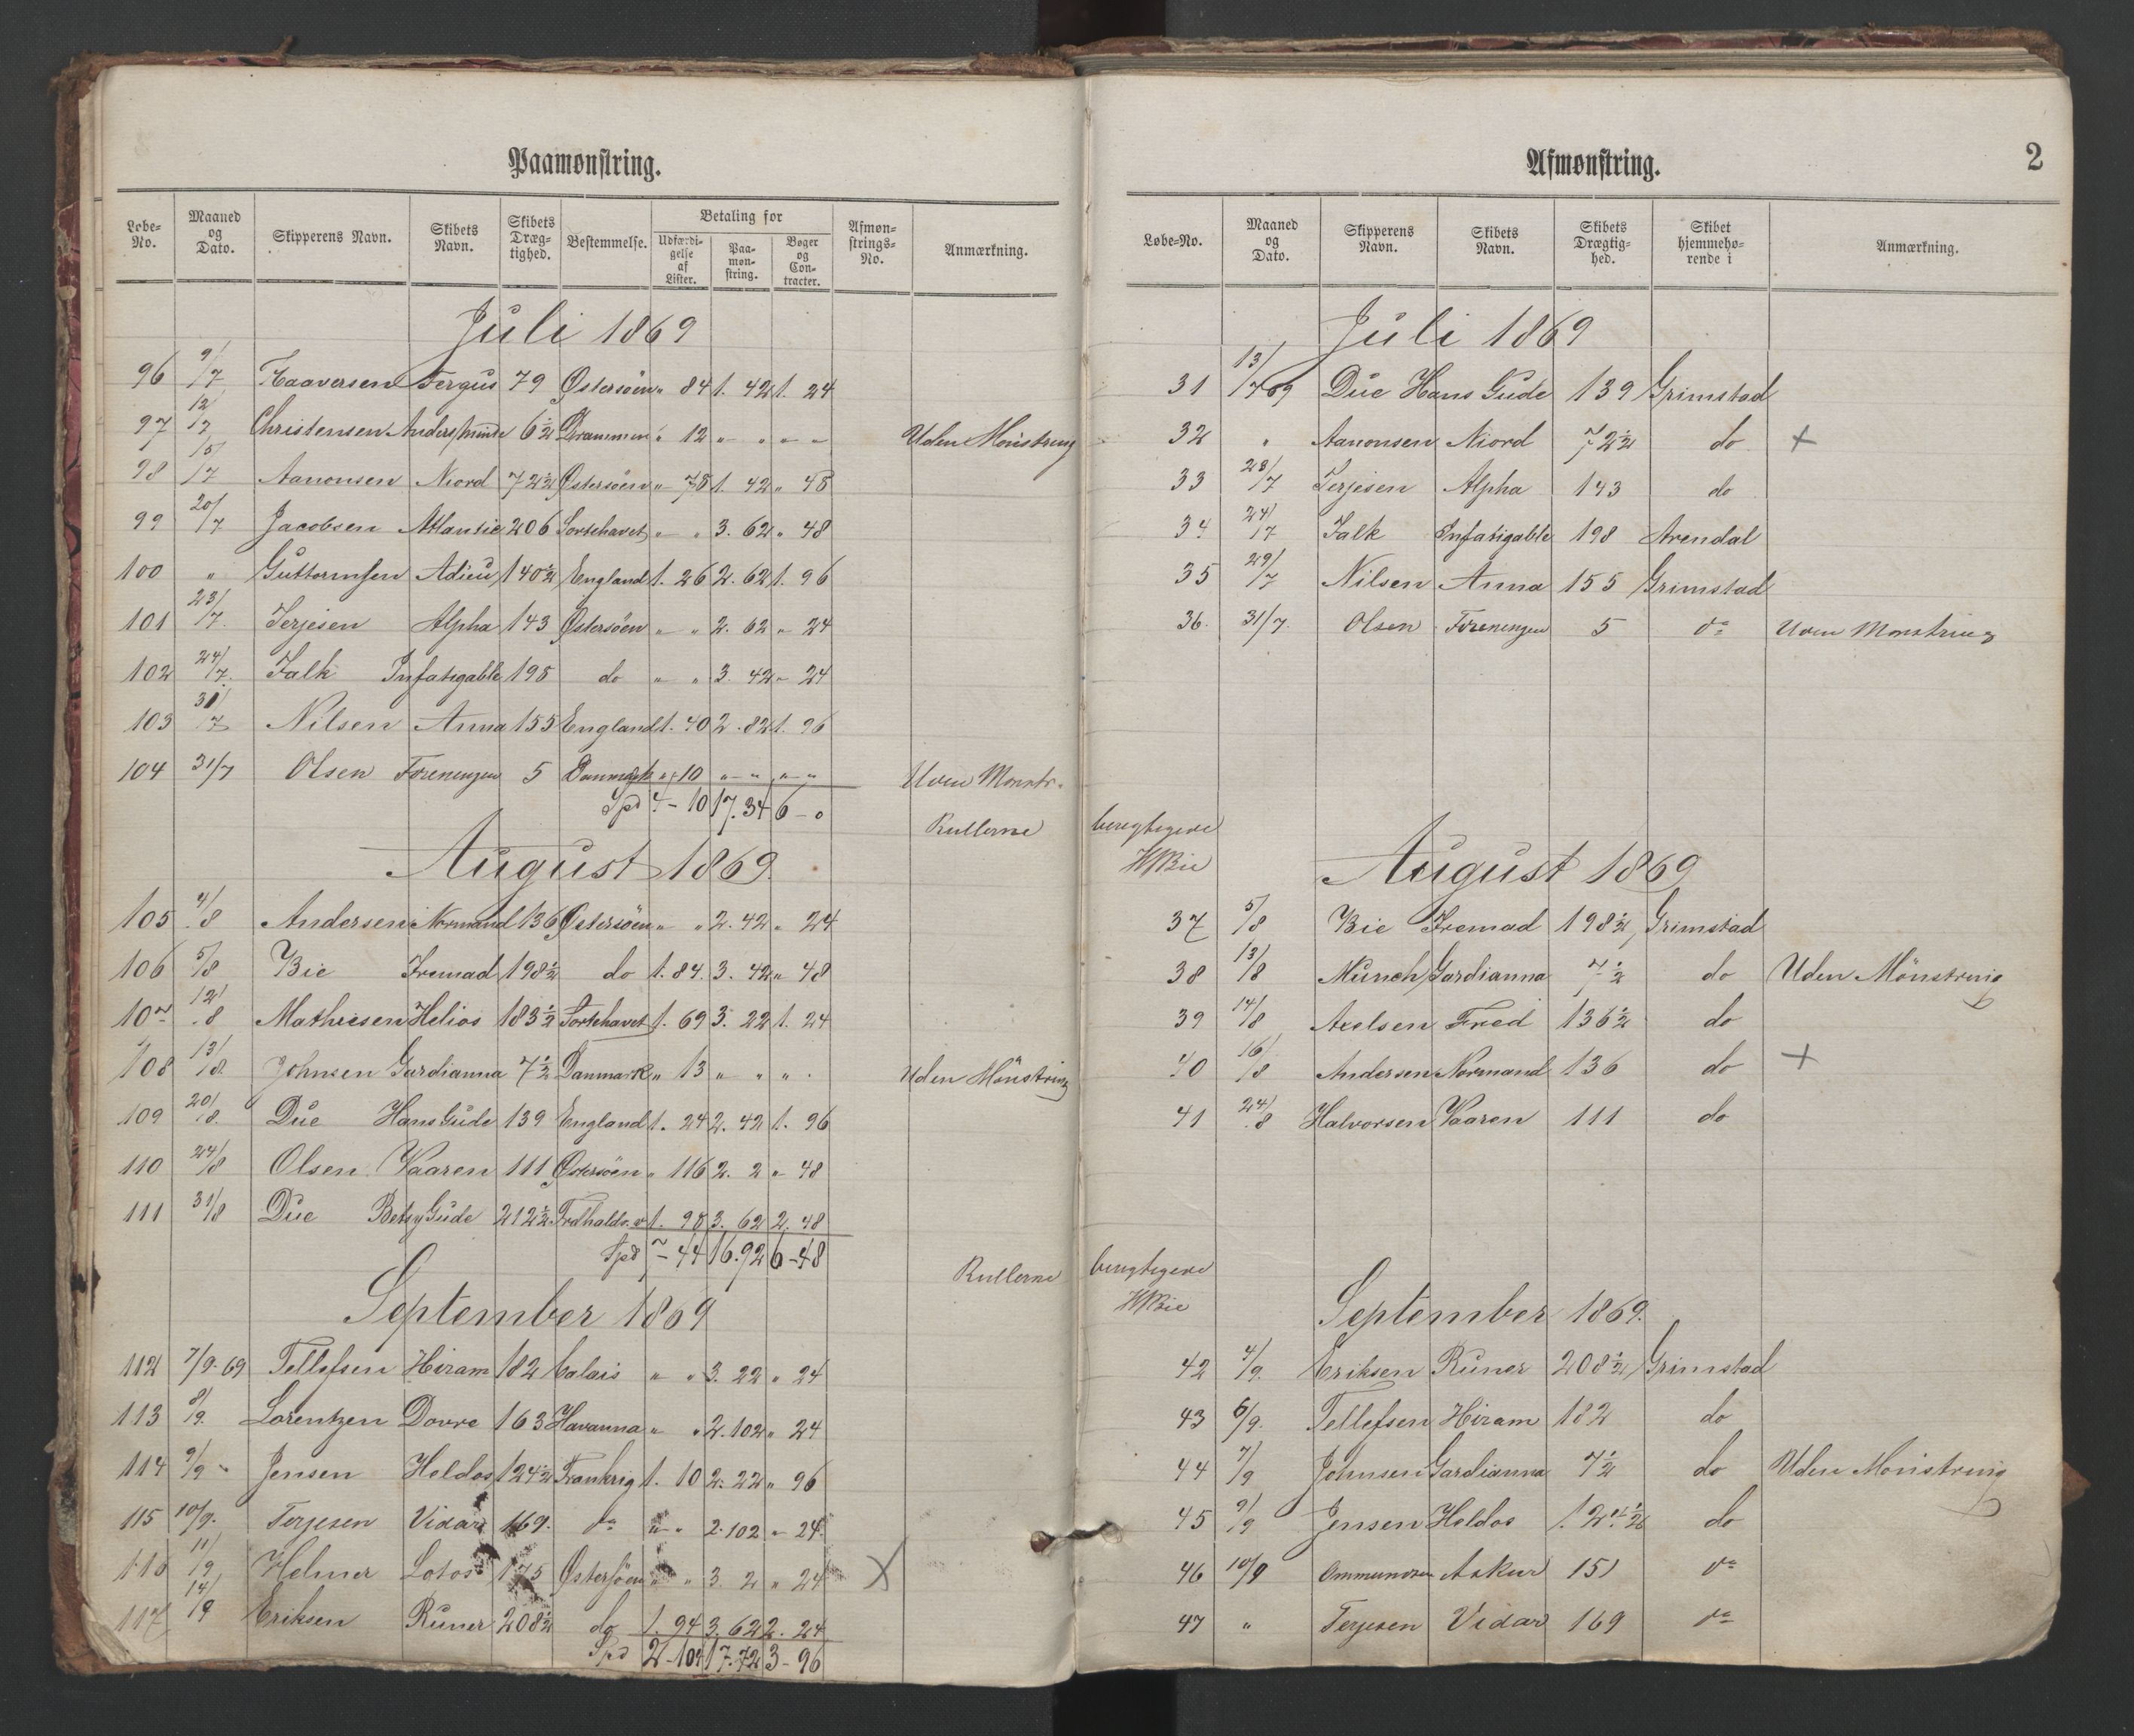 Paamønstring.
Løbe-No. Maaned og Dato. Skipperens Navn. Skibets Navn. Skibets Dræg-tighed. Bestemmelse. Betaling for Udfærdi-gelse af Lister. Paa-møn-string. Bøger og Con-tracter. Afmøn-strings-No. Anmærkning.
Juli 1869
96 9/7 Haaversen Fergus 79 Østersöen " 84 1. 42 1. 24
97 12/7 Christensen Anders minde 6½ Drammen " 12 " " " " Uden Mönstring
98 15/7 Aanonsen Niord 72½ Östersöen " 78 1. 42 " 48
99 20/7 Jacobsen Atlantic 206 Sortehavet " " 3. 62 " 48
100 " Guttormsen Adieu 140½ England 1. 26 2. 62 1. 96
101 23/7 Terjesen Alpha 143 Östersöen " " 2. 62 " 24
102 24/7 Falk Infatigable 198 do " " 3. 42 " 24
103 31/7 Nilsen Anna 155 England 1. 40 2. 82 1. 96
104 31/7 Olsen Foreningen 5 Danmark " 10 " " " " Uden Monstr.
Spd 4 - 10 17. 34 6 - 0
Rullerne
August 1869
105 4/8 Andersen Normand 136 Östersöen " " 2. 42 " 24
106 5/8 Bie Fremad 198½ do 1. 84. 3. 42 " 48
107 12/8 Mathiesen Helios 183½ Sortehavet 1. 69 3. 22 1. 24
108 13/8 Johnsen Gardianna 7½ Danmark " 13 " " " . Uden Mönstring
109 20/8. Due Hans Gude 139 England 1. 24 2. 42 1. 96
110 24/8 Olsen Vaaren 111 Östersöen " 116 2. 2 " 48
111 31/8 Due Betsy Gude 212½ Frdhald 1. 98 3. 62 2. 48
Spd 7 - 44 16. 92 6 - 48
Rullerne
September 1869
112 7/9. 69 Tellefsen Hiram 182 Calais " " 3. 22 " 24
113 8/9. Lorentzen Dovre 163 Havanna " " 2. 102 " 24
114 9/9 Jensen Heldos 124½ Frankrig 1. 10 2. 22 " 96
115 10/9. Terjesen Vidar 169. do " " 2. 102 " 24.
116 11/9 Helmer Lotos 175 Östersöen " " 3. 2 " 24 X
117 14/9 Eriksen Runer 208½ do 1. 94 3. 62 2. 24
Spd 2 - 104 17. 72 3 - 96
Afmønstring.
2
Løbe-No. Maaned og Dato. Skipperens Navn. Skibets Navn. Skibets Drægtig-hed. Skibet hjemmehø-rende i Anmærkning.
Juli 1869
31 13/7 69 Due Hans Gude 139 Grimstad
32 " Aanonsen Niord 72½ do +
33 23/7 Terjesen Alpha 143 do
34 24/7 Falk Infatigable 198 Arendal
35 29/7 Nilsen Anna 155 Grimstad
36. 31/7. Olsen Foreningen 5 do Uden Monstring
berigtigede
HBie
August 1869
37 5/8 Bie Fremad 198½ Grimstad
38 13/8 Munch Gardianna 7½ do Uden Mönstring
39 14/8 Axelsen Fried 136½ do
40 16/8 Andersen Normand 136 do +
41 24/8 Halvorsen Vaaren 111 do
berigtigede
HBie
September 1869.
42 4/9. Eriksen Runer 208½ Grimstad
43 6/9. Tellefsen Hiram 182 do
44 7/9 Johnsen Gardianna 7½ do Uden Mönstring
45 9/9 Jensen Heldos 124½ do
46 10/9 Ommundsen Askur 151 do
47 " Terjesen Vidar 169 do